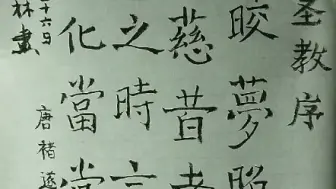 圣教序
皎夢照
慈昔者
之時言
化當
唐褚遂
十六日
林書